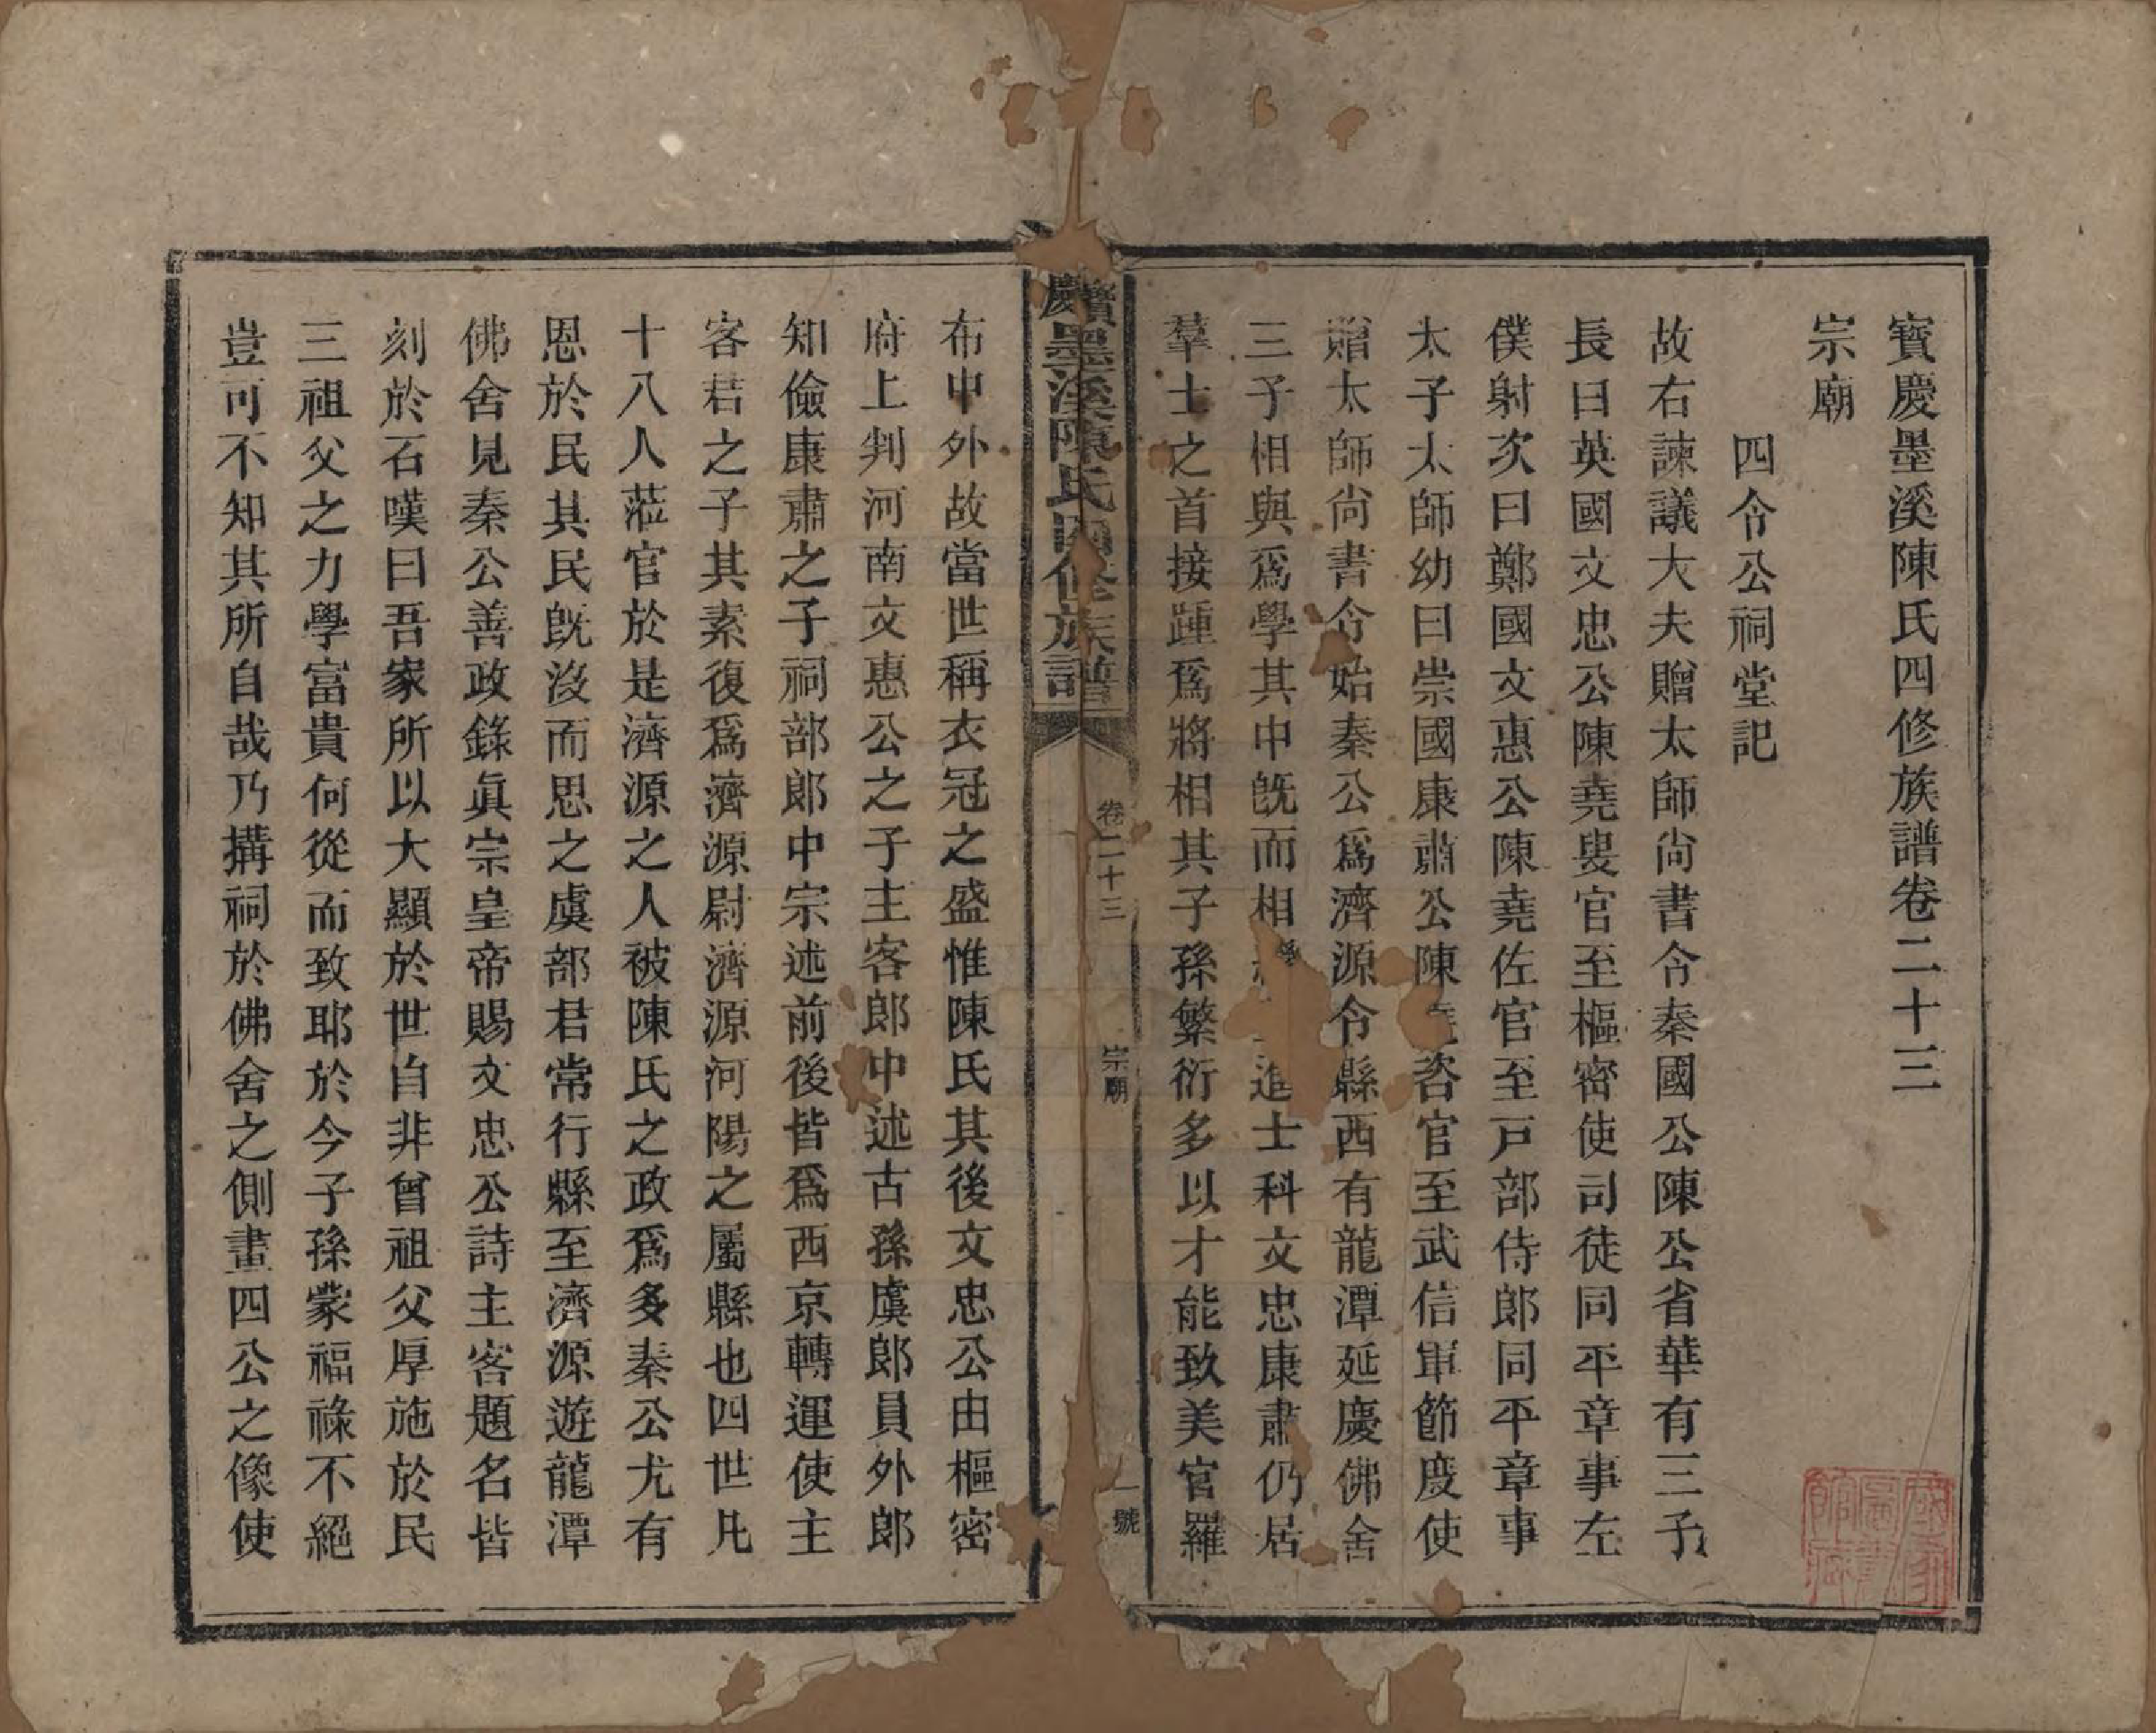 寳慶墨溪陳氏四修族譜卷二十三
宗廟
四令公祠堂記
故右諫議大夫贈太師尙書令秦國公陳公省華有三子
長曰英國文忠公陳堯叟官至樞密使司徒同平章事左
僕射次曰鄭國文惠公陳堯佐官至戸部侍郎同平章事
太子太師幼曰崇國康肅公陳咨官至武信軍節度使
贈太師尙書令始秦公爲濟源令縣西有龍潭延慶佛舍
三子相與爲學其中旣而相進士科文忠康肅仍居
羣士之首接踵爲將相其子孫繁衍多以才能致美官羅
寳慶墨溪陳氏四修族譜
卷二十三
宗廟
一號
布中外故當世稱衣冠之盛惟陳氏其後文忠公由樞密
府上判河南文惠公之子主客郎中述古孫虞郎員外郎
知儉康肅之子祠部郎中宗述前後皆爲西京轉運使主
客君之子其素復爲濟源尉濟源河陽之屬縣也四世凡
十八人蒞官於是濟源之人被陳氏之政爲多秦公尤有
恩於民其民旣沒而思之虞部君常行縣至濟源遊龍潭
佛舍見秦公善政錄眞宗皇帝賜文忠公詩主客題名皆
刻於石嘆曰吾家所以大顯於世自非曾祖父厚施於民
三祖父之力學富貴何從而致耶於今子孫蒙福祿不絕
豈可不知其所自哉乃搆祠於佛舍之側畫四公之像使